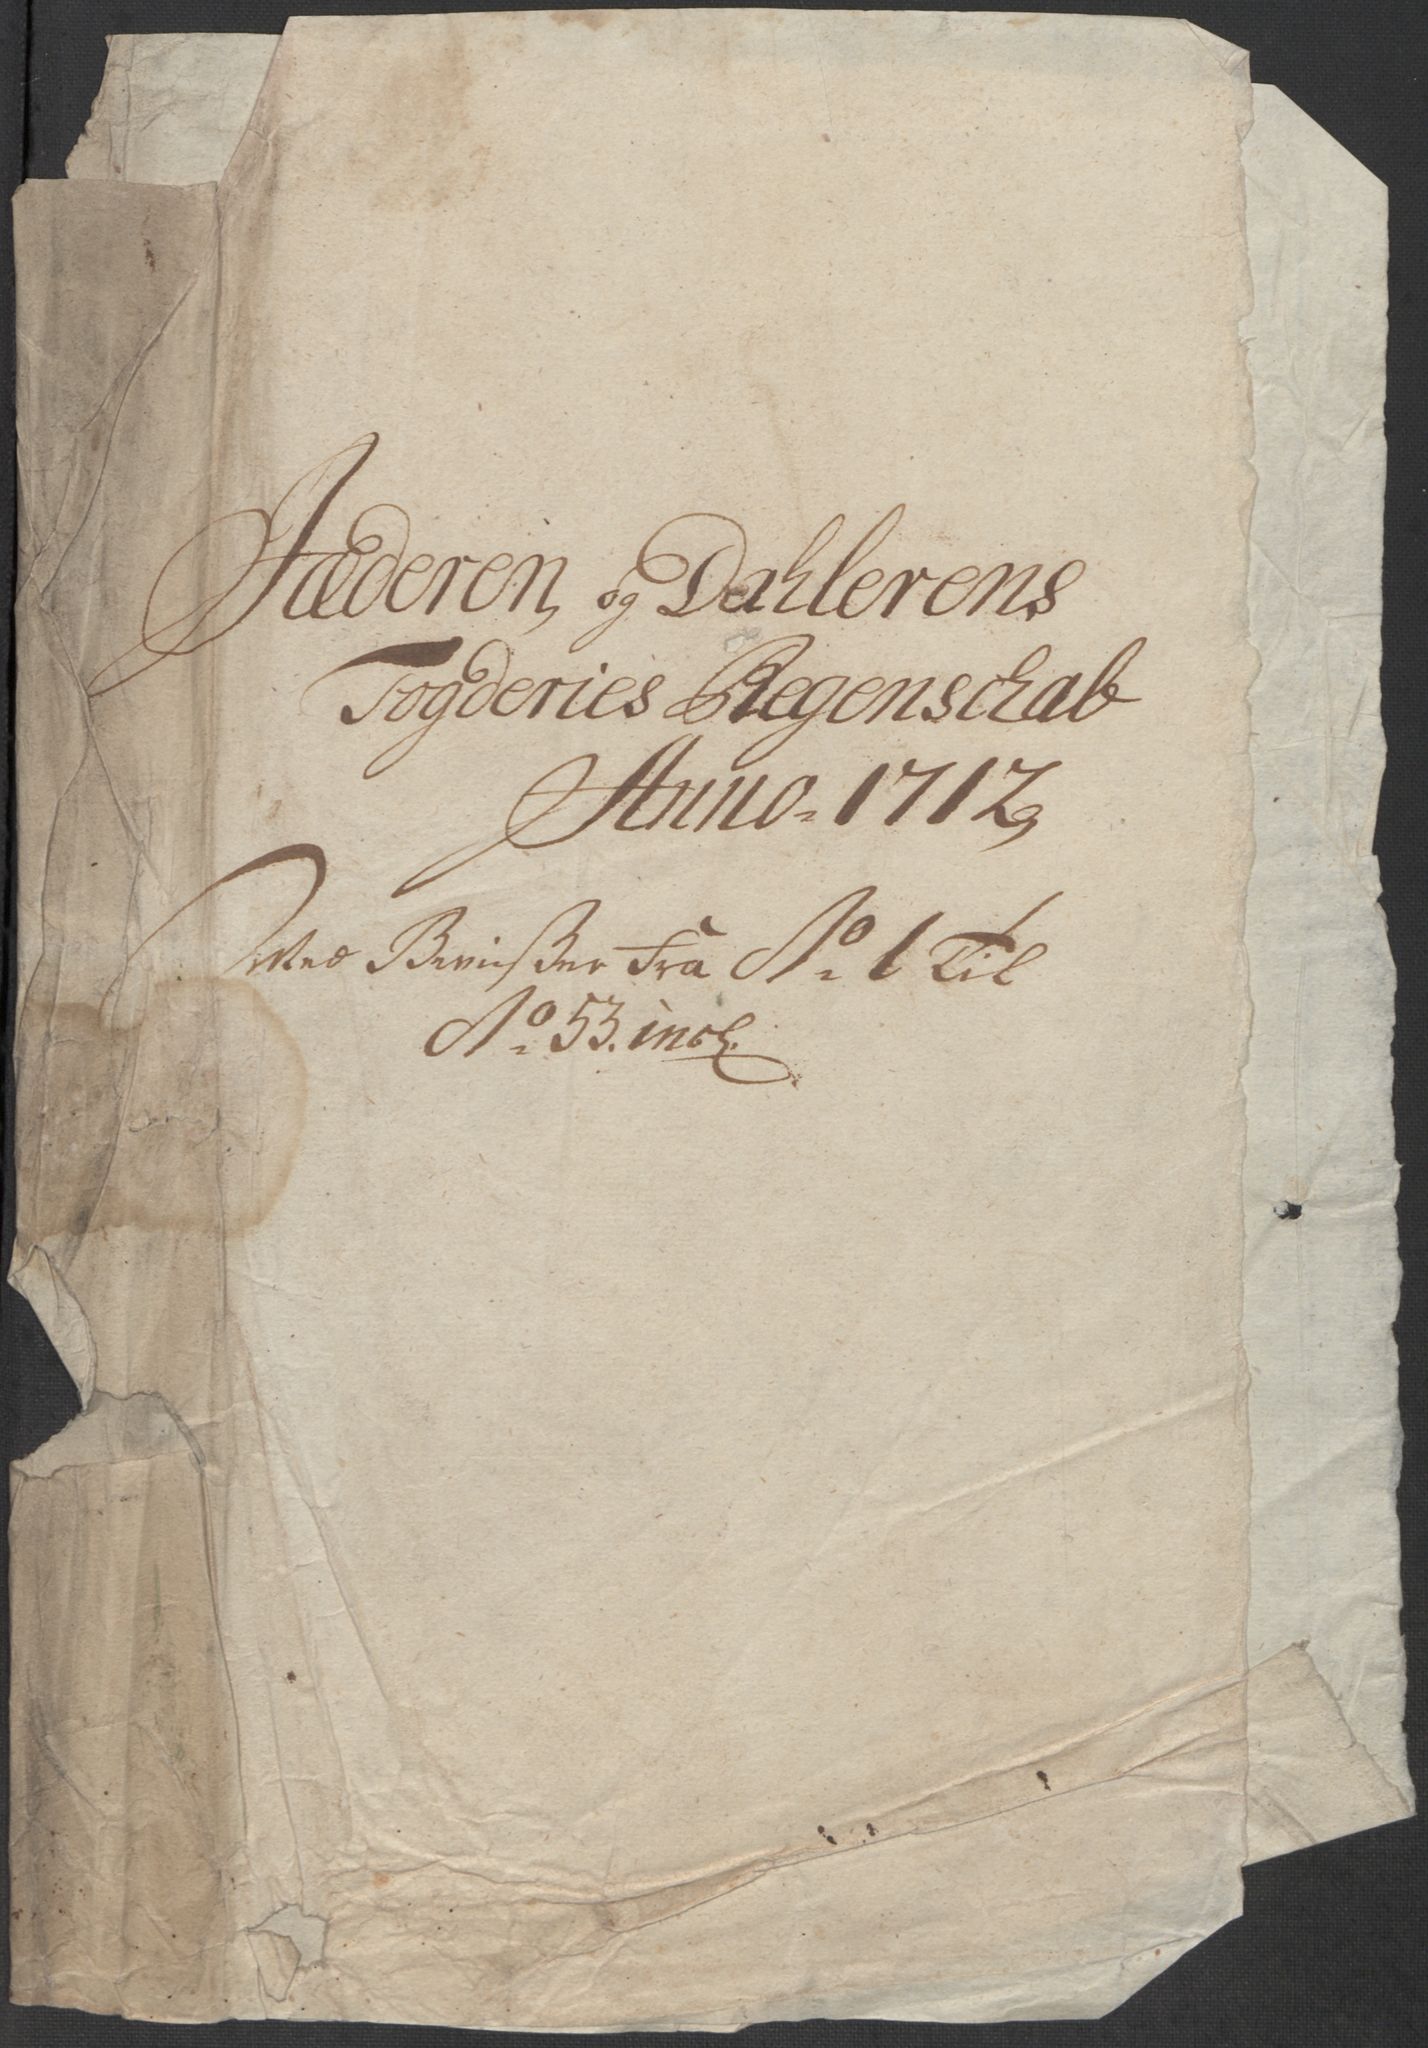 Jæderen, og Dahlerens
Fogderies Regenschab
Anno 1712,
Med Bevißer fra No 1 Til
No 53. incl.